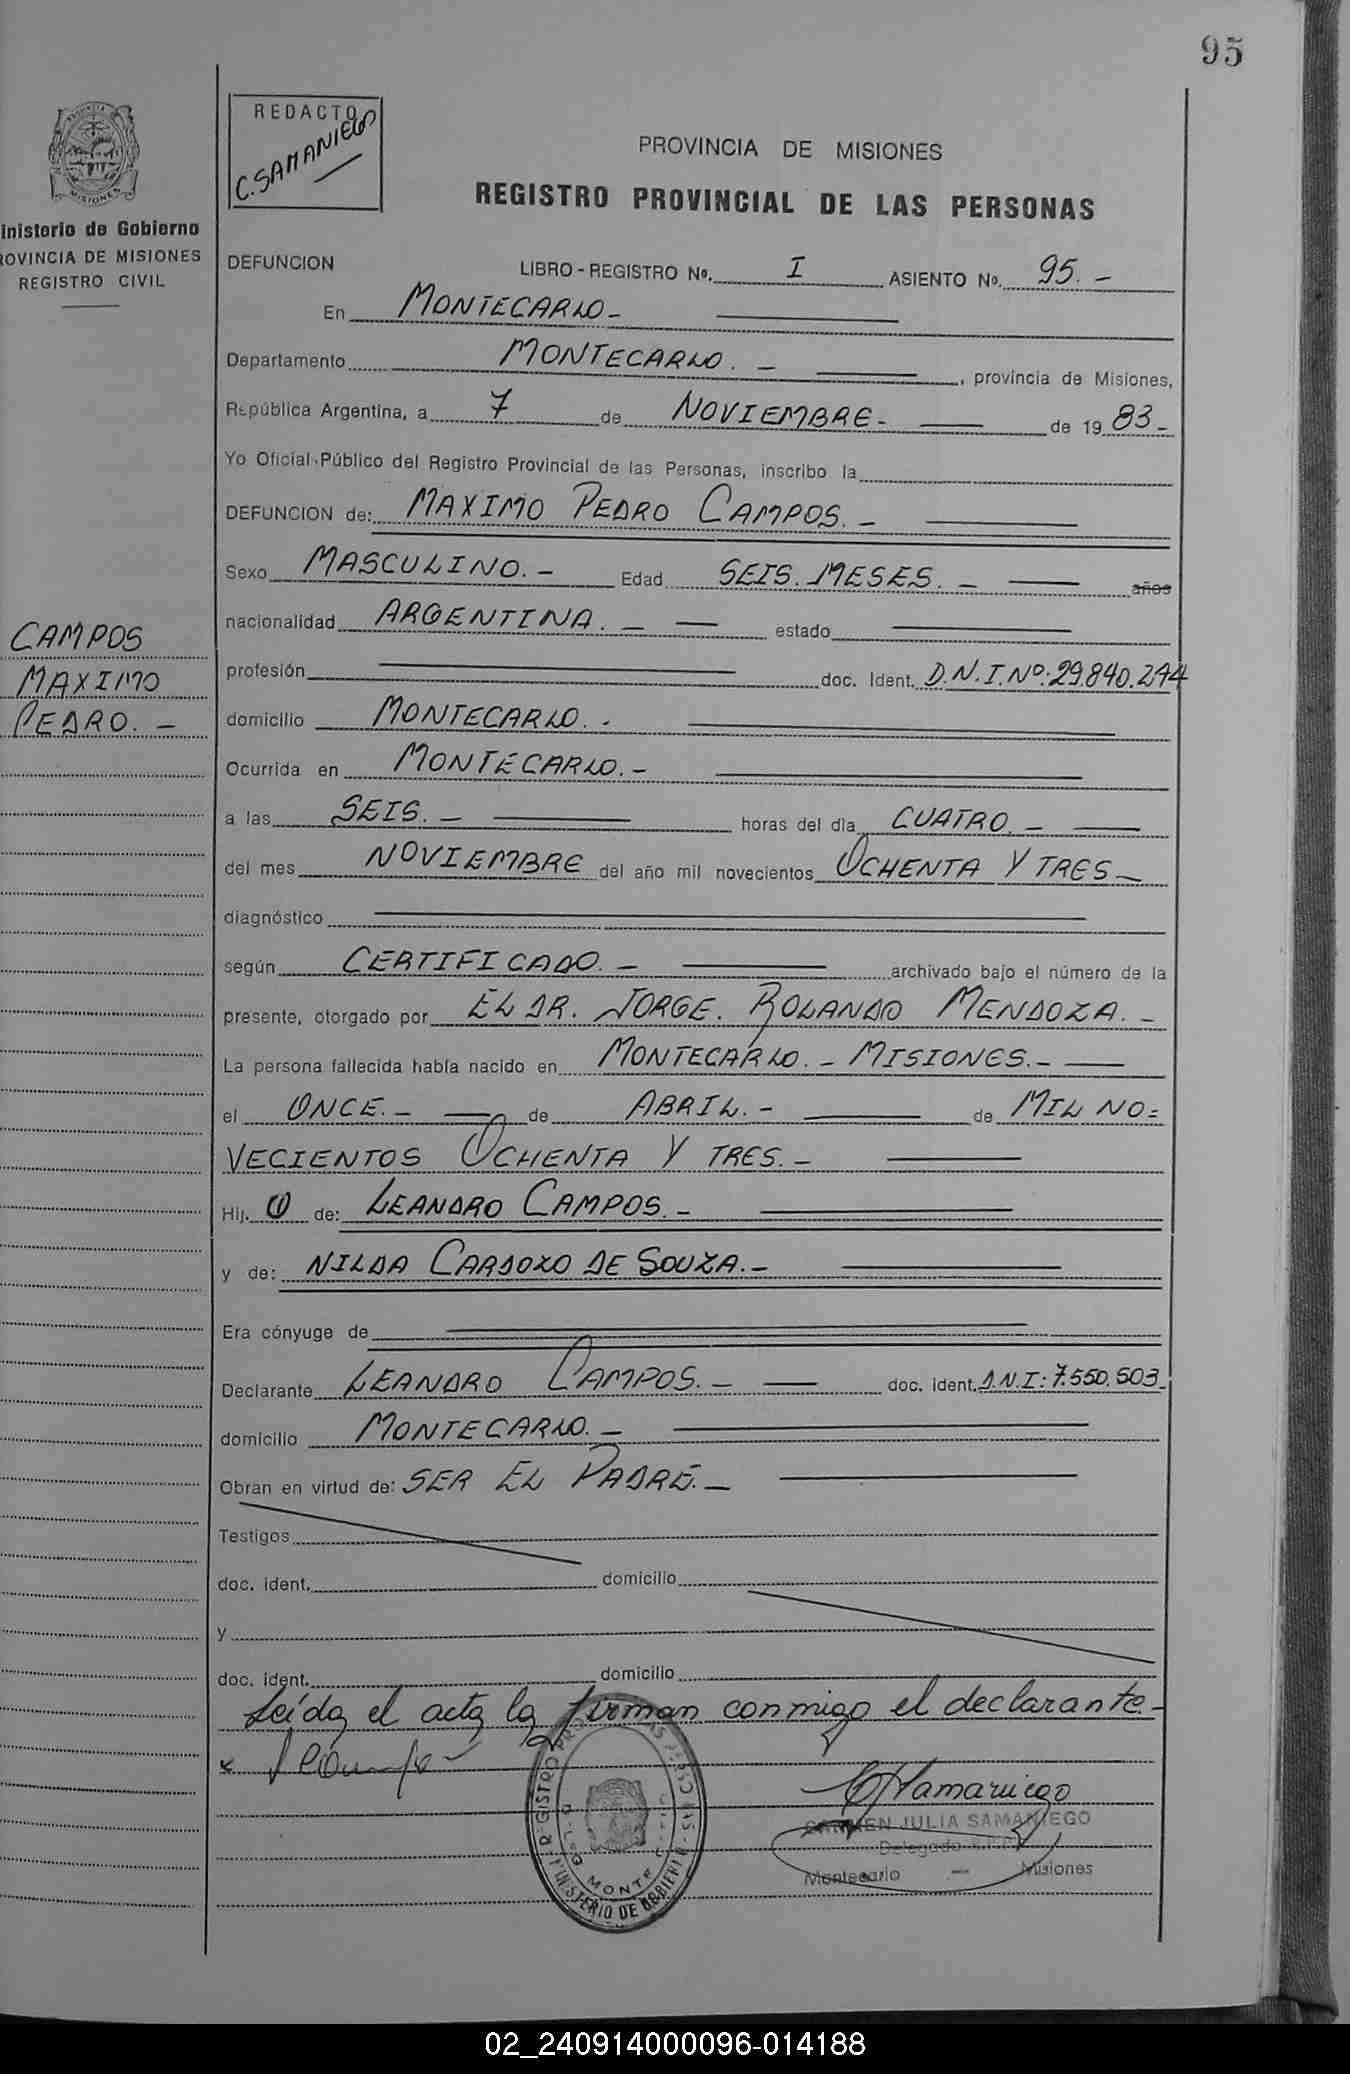 95
REDACTO
C. SAMANIEGO
PROVINCIA DE MISIONES
REGISTRO PROVINCIAL DE LAS PERSONAS
inisterio de Gobierno
ROVINCIA DE MISIONES
REGISTRO CIVIL
DEFUNCION LIBRO - REGISTRO No. I ASIENTO No. 95. -
En MONTECARLO -
Departamento MONTECARLO. - , provincia de Misiones,
República Argentina, a 7 de NOVIEMBRE - de 19 83 -
Yo Oficial Público del Registro Provincial de las Personas, inscribo la
DEFUNCION de: MAXIMO PEDRO CAMPOS. -
Sexo MASCULINO. - Edad SEIS. MESES. - años
nacionalidad ARGENTINA. - estado
CAMPOS
MAXIMO
PEDRO. -
profesión doc. Ident. D.N.I. Nº: 29.840.244
domicilio MONTECARLO. -
Ocurrida en MONTECARLO. -
a las SEIS. - horas del día CUATRO. -
del mes NOVIEMBRE del año mil novecientos OCHENTA Y TRES -
diagnóstico
según CERTIFICADO. - archivado bajo el número de la
presente, otorgado por EL DR. JORGE. ROLANDO MENDOZA. -
La persona fallecida había nacido en MONTECARLO. - MISIONES. -
el ONCE. - de ABRIL. - de MIL NO=
VECIENTOS OCHENTA Y TRES. -
Hij. O de: LEANDRO CAMPOS. -
y de: NILDA CARDOZO DE SOUZA. -
Era cónyuge de
Declarante LEANDRO CAMPOS. - doc. ident. D.N.I: 7.550.503 -
domicilio MONTECARLO. -
Obran en virtud de: SER EL PADRE. -
Testigos
doc. ident. domicilio
y
doc. ident. domicilio
Leída el acta la firman conmigo el declarante. -
CARMEN JULIA SAMANIEGO
Delegado
Montecarlo - Misiones
MINISTERIO DE GOBIERNO
02_240914000096-014188